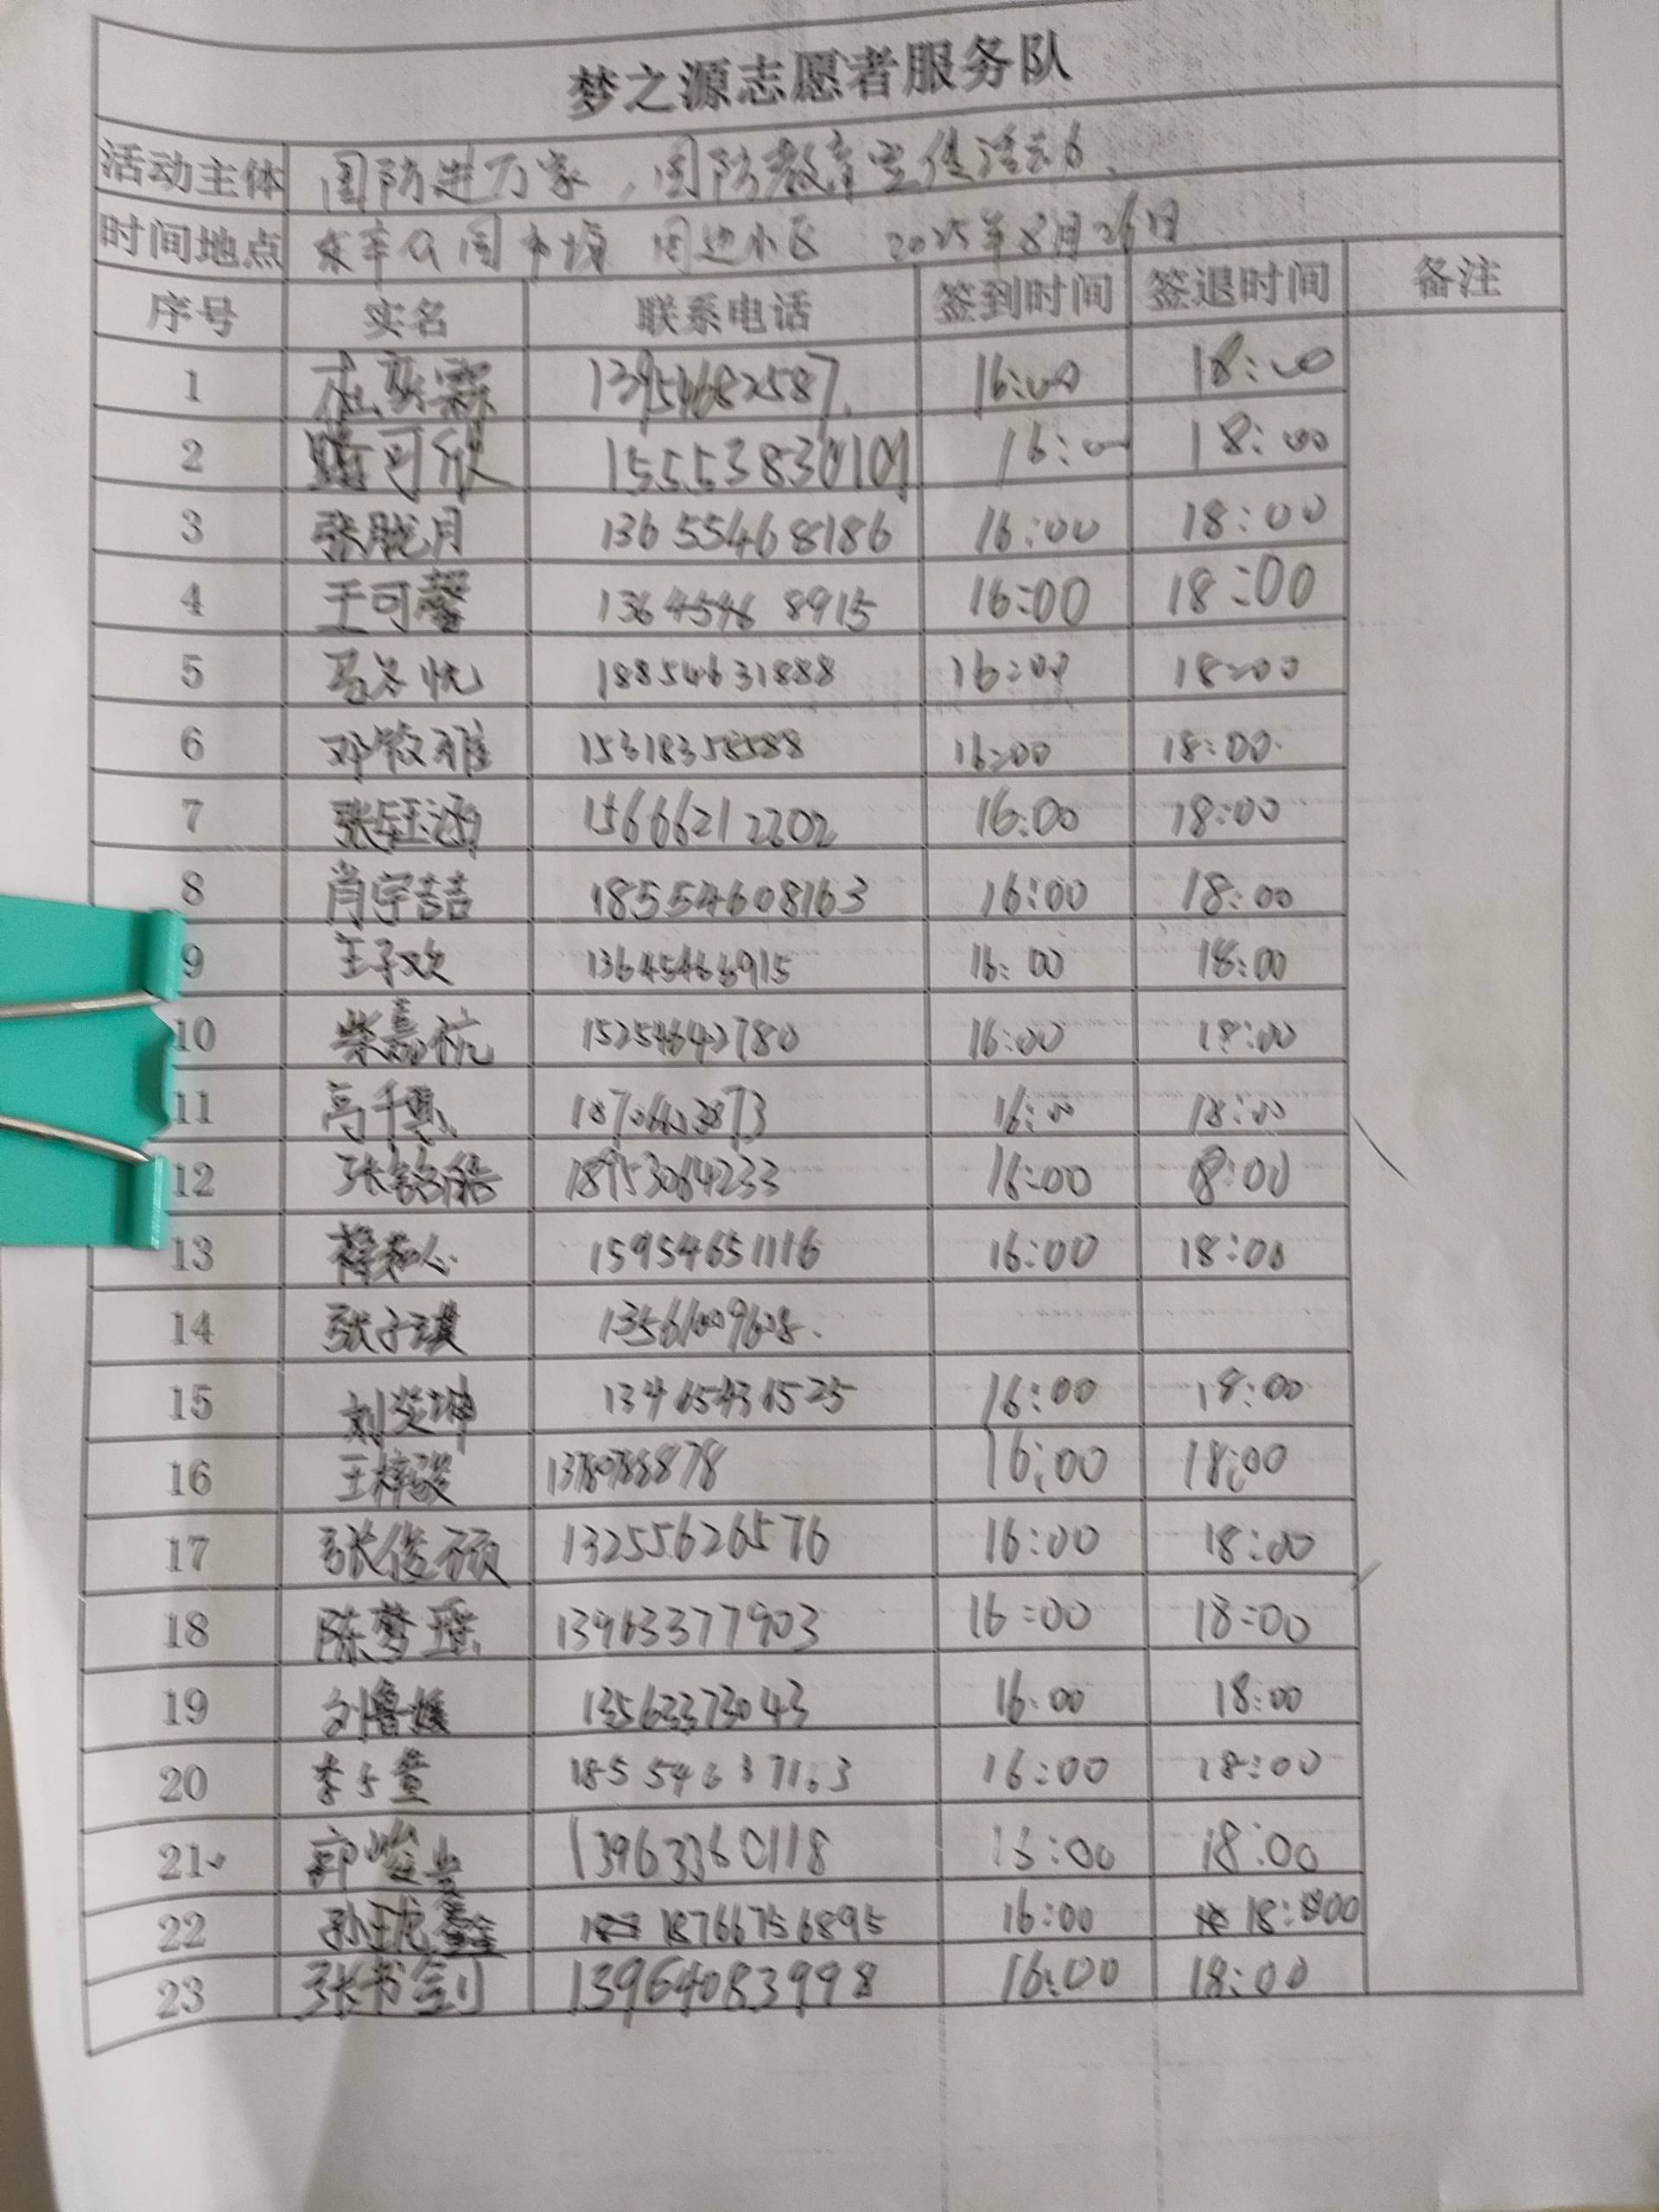 梦之源志愿者服务队
活动主体 国防进万家，国防教育宣传活动、
时间地点 公园市场 周边小区 2025年8月26日
序号 实名 联系电话 签到时间 签退时间 备注
1 13954682587. 16:00 18:00
2 可欣 15553830101 16:00 18:00
3 张胧月 13655468186 16:00 18:00
4 王可馨 13645468915 16:00 18:00
5 悦 18854631888 16:00 18:00
6 邓牧雅 15318358588 16:00 18:00
7 张钰涵 15666212202 16:00 18:00
8 肖宇喆 18554608163 16:00 18:00
9 王子欢 13645468915 16:00 18:00
10 柴嘉杭 15254642780 16:00 18:00
11 高千惠 16:00 18:00
12 张铭皓 18953064233 16:00 18:00
13 心 15954651116 16:00 18:00
14 张子琪 13561009608.
15 刘芷坤 13465431525 16:00 18:00
16 王梓骏 16:00 18:00
17 张俊硕 13255626576 16:00 18:00
18 陈梦瑶 13963377903 16:00 18:00
19 刘鲁媛 13563373043 16:00 18:00
20 李 萱 18554637163 16:00 18:00
21 郭 13963360118 16:00 18:00
22 孙珑鑫 18766756895 16:00 18:00
23 张书剑 13964083998 16:00 18:00